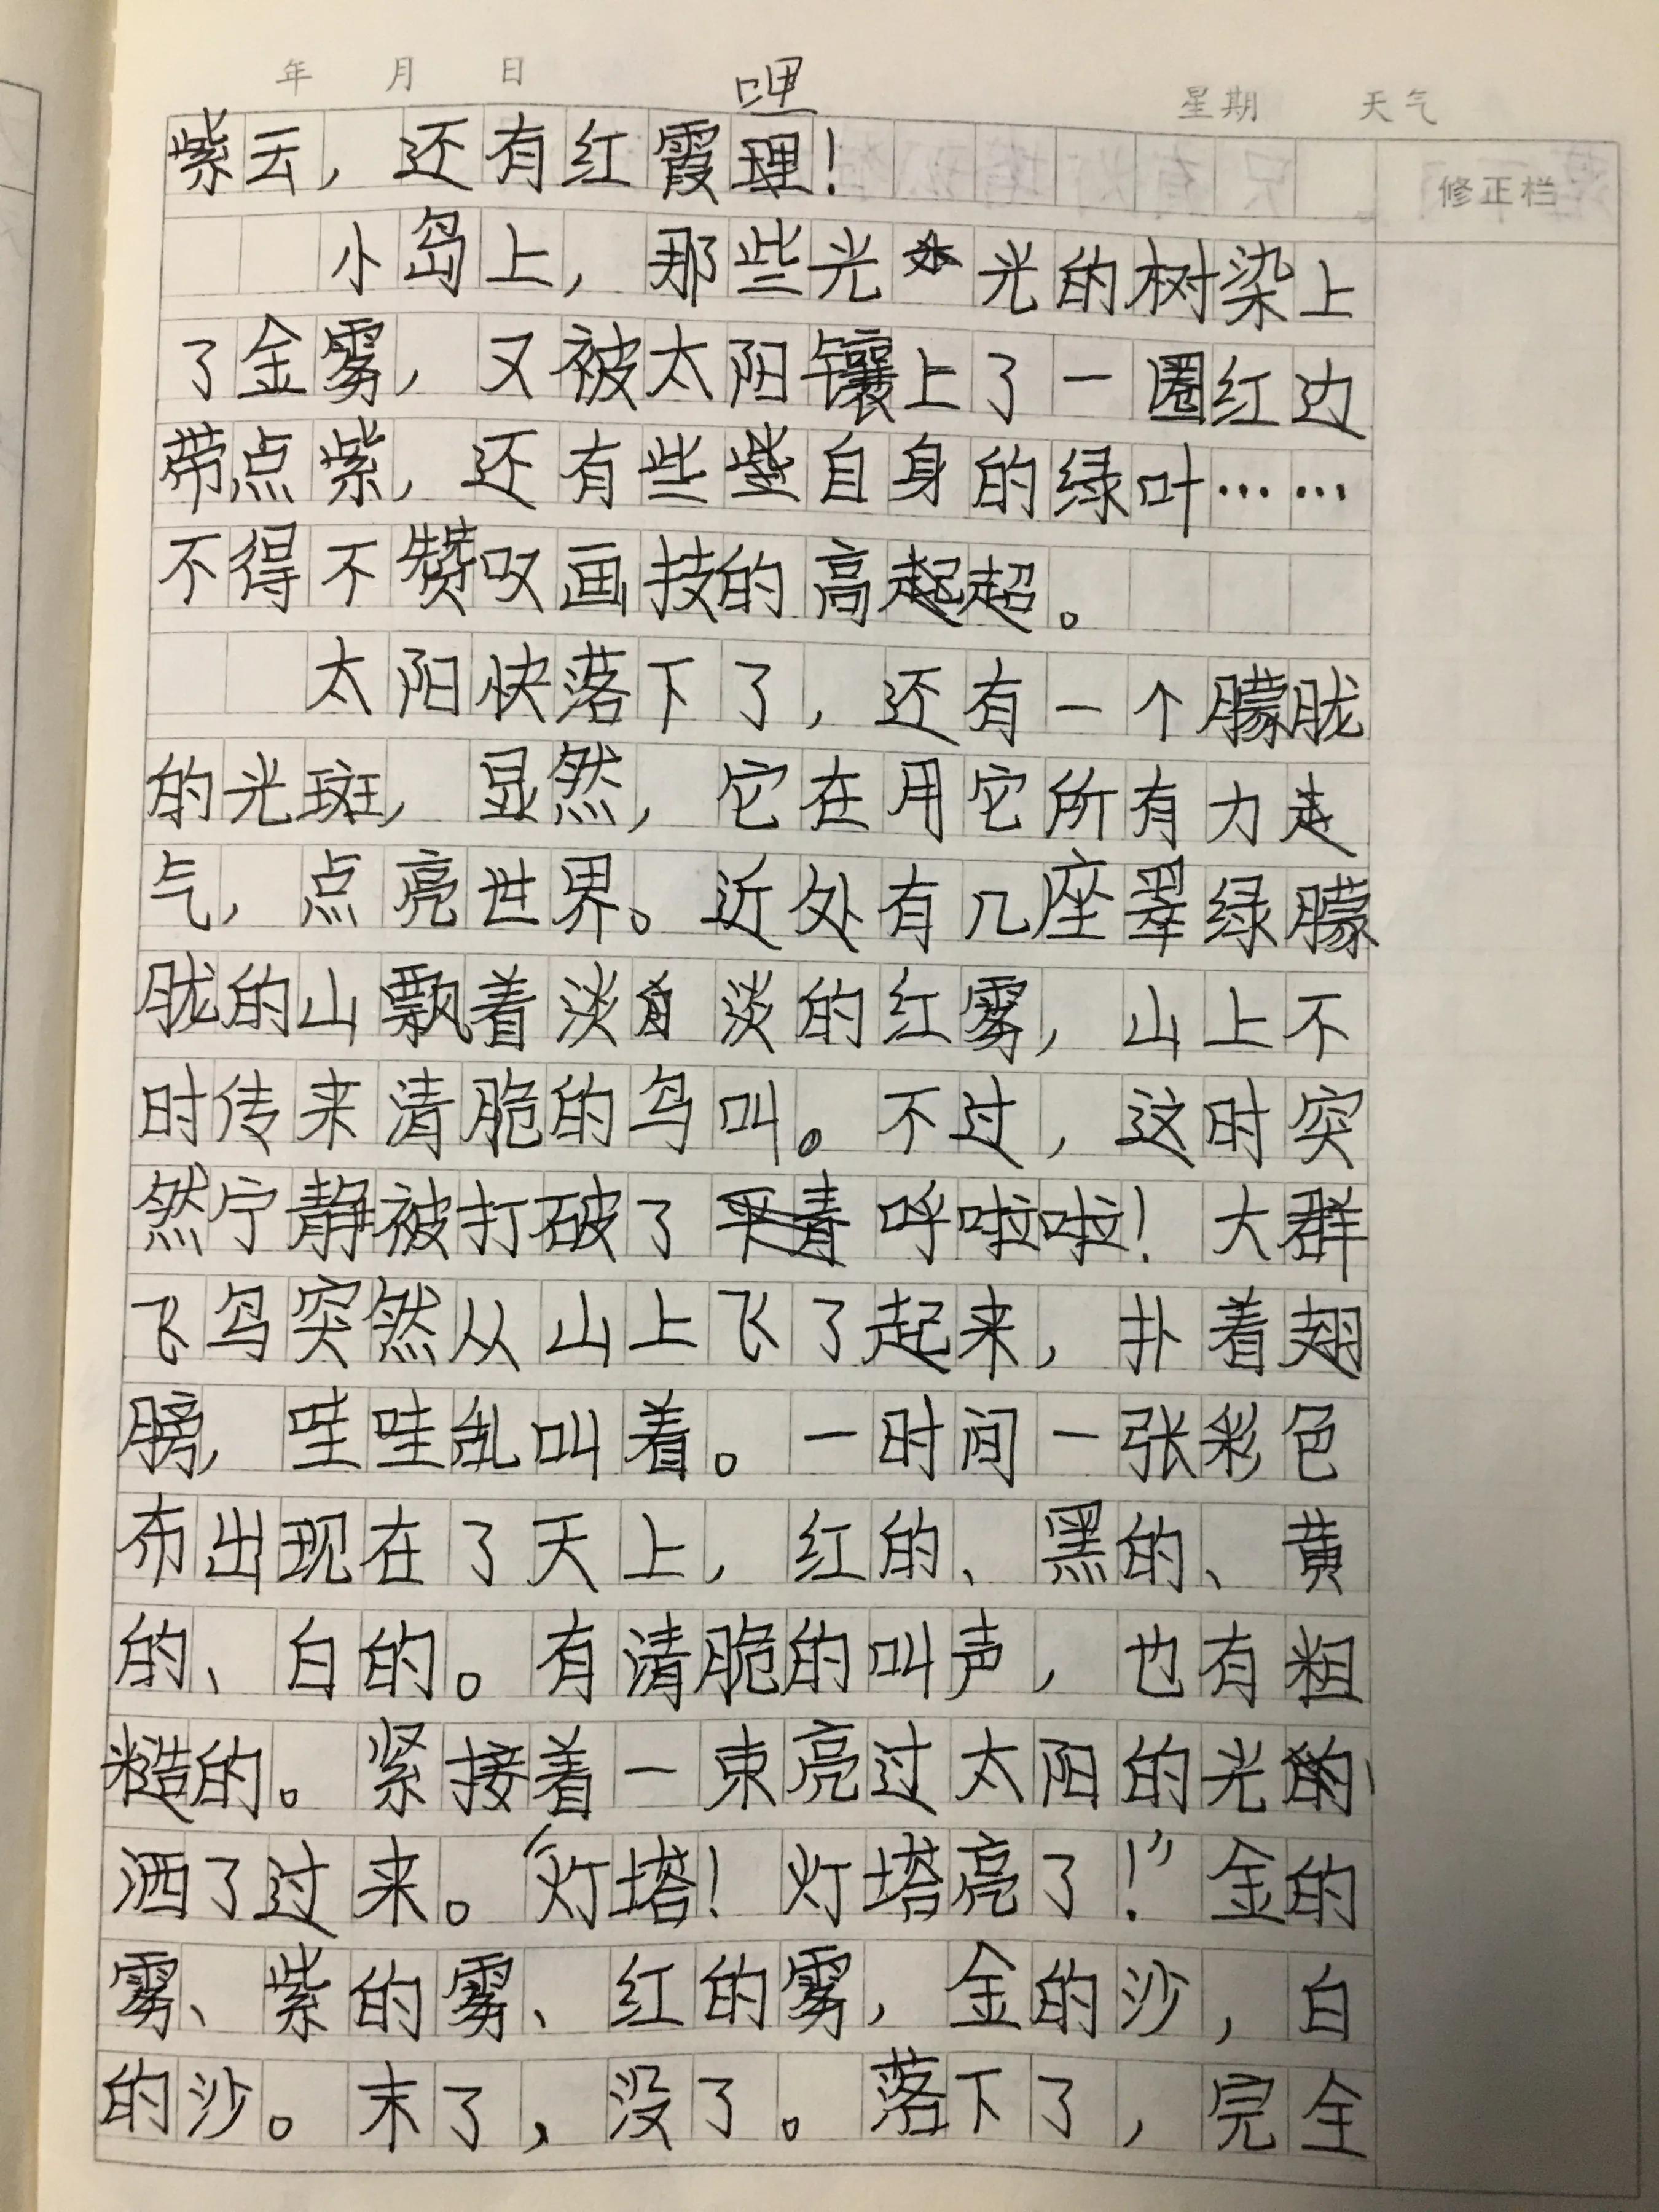 年 月 日 星期 天气
哩
紫云，还有红霞理！
修正栏
小岛上，那些光光的树染上
了金雾，又被太阳镶上了一圈红边
带点紫，还有些些自身的绿叶……
不得不赞叹画技的高起超。
太阳快落下了，还有一个朦胧
的光斑，显然，它在用它所有力走
气，点亮世界。近处有几座翠绿朦
胧的山飘着淡淡的红雾，山上不
时传来清脆的鸟叫。不过，这时突
然宁静被打破了呼啦啦！大群
飞鸟突然从山上飞了起来，扑着翅
膀，哇哇乱叫着。一时间一张彩色
布出现在了天上，红的、黑的、黄
的、白的。有清脆的叫声，也有粗
糙的。紧接着一束亮过太阳的光的
洒了过来。“灯塔！灯塔亮了！”金的
雾、紫的雾、红的雾，金的沙，白
的沙。末了，没了。落下了，完全